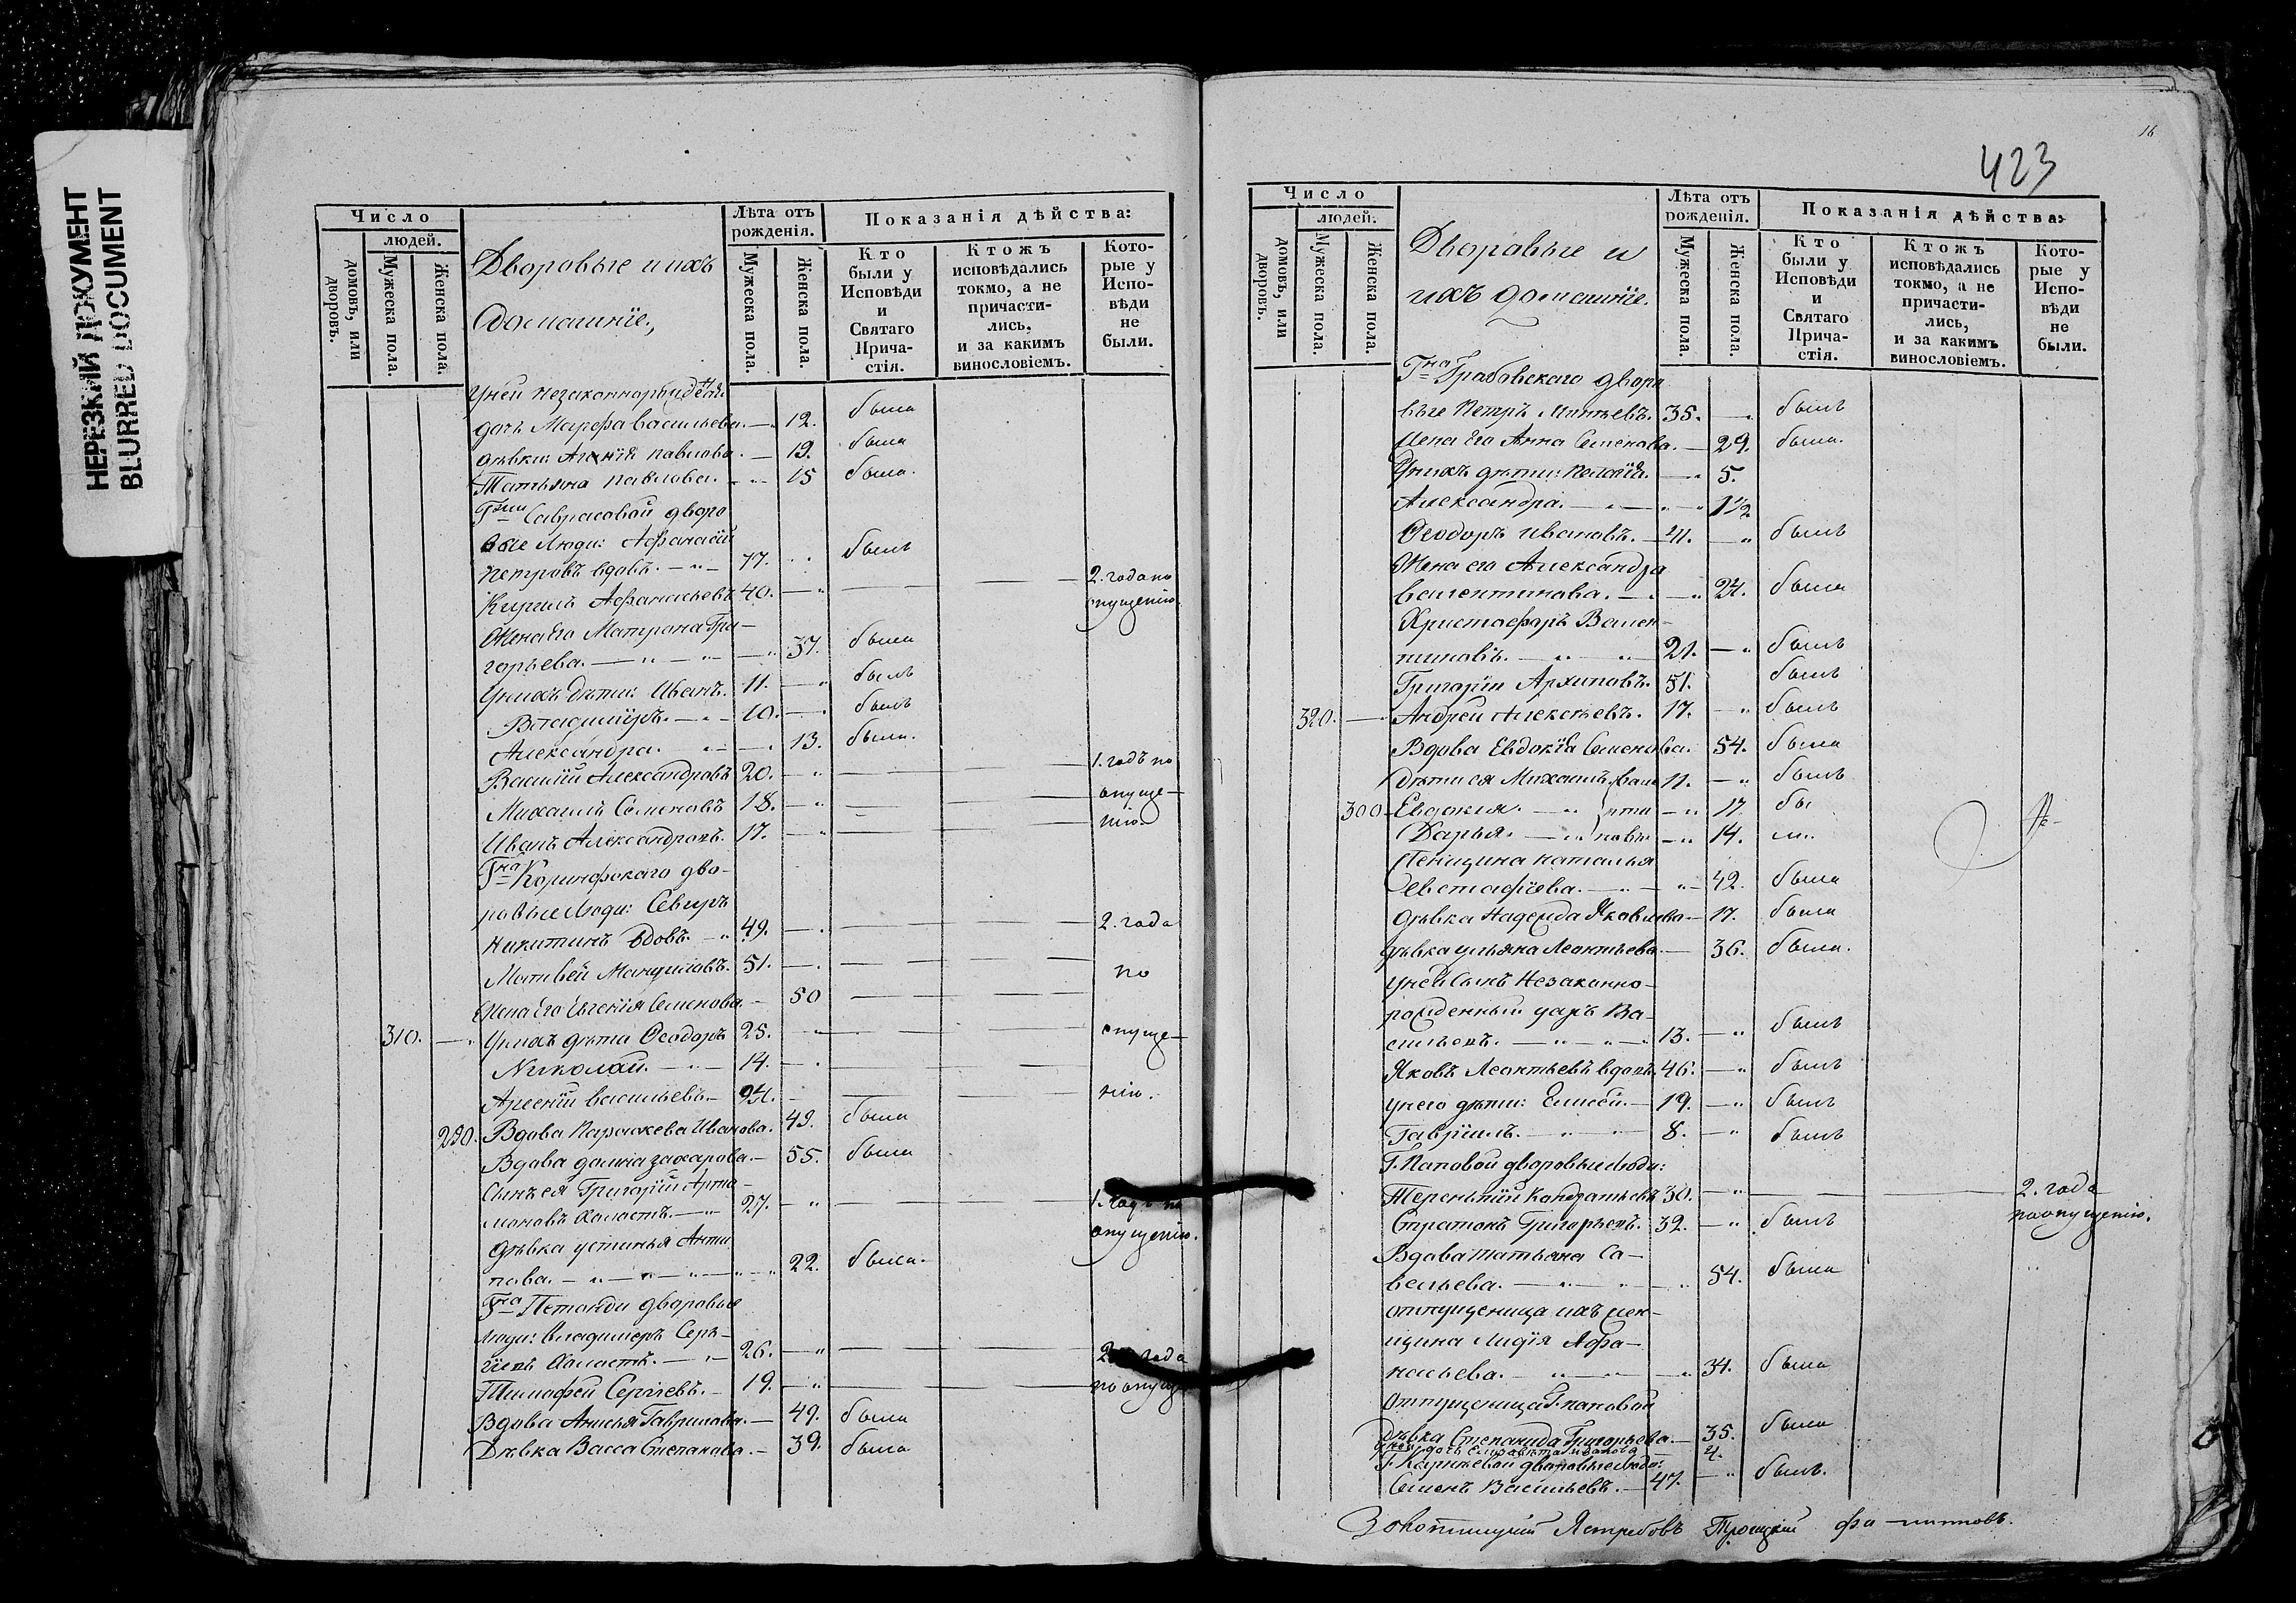 НЕРЕЗКИЙ ДОКУМЕНТ
BLURRED DOCUMENT
Число
людей.
домовъ, или дворовъ.
Мужеска пола.
Женска пола.
Дворовые и ихъ
домашнїе.,
Лѣта отъ рожденія.
Мужеска пола.
Женска пола.
Показанія дѣйства:
Кто были у Исповѣди и Святаго Прича-стія.
Ктожъ исповѣдались токмо, а не причасти-лись, и за какимъ винословіемъ.
Кото-рые у Испо-вѣди не были.
у ней незаконнорожденная
дочь Марфа васильева. — 12. была
дѣвки: павлова. — 19. была
Татьяна павлова. — 15 была.
Гжи Саврасовой дворо
вые люди: Афанасїй
Петровъ вдовъ. — 77. былъ
Кирилъ Афанасьевъ 40. — 2. года по опущенію.
Жена Его Матрона Гри—
горьева. — 37. была
У нихъ дѣти: Иванъ. 11. — былъ
Владимїръ. — 10. — былъ
Александра. — 13. была.
Василїй Александровъ 20. — 1. годъ по
Михаилъ Семеновъ 18. — опуще—
Иванъ Александровъ. 17. — нію.
Гна Коринфскаго дво—
ровые люди:
Никитинъ вдовъ. — 49. — 2. года
Матвей 51. — по
Жена Его Евгенїя Семенова. — 50
310. — У нихъ дѣти Ѳеодоръ 25. — опуще—
Николай. — 14. —
Арсенїй васильевъ. — — нію.
290. Вдова Параскева Иванова. 49. была
Вдова домна захарова. — 55. была
Сынъ ея Григорїй Арта—
моновъ Холостъ. — 27. — 1. годъ по
опущенію.
Дѣвка устинья Анти
пова. — 22. была.
Гна дворовые
люди: владимиръ Серг—
Холостъ. — 26. — 2 года
Тимофей Сергіевъ. — 19. — по опуще
Вдова Анисья Гаврилова. — 49. была
Дѣвка Васса Степанова. — 39. была
16
423
Число
людей.
домовъ, или дворовъ.
Мужеска пола.
Женска пола.
Дворовые и
ихъ домашнїе.
Лѣта отъ рожденія.
Мужеска пола.
Женска пола.
Показанія дѣйства:
Кто были у Исповѣди и Святаго Прича-стія.
Ктожъ исповѣдались токмо, а не причасти-лись, и за какимъ винословіемъ.
Кото-рые у Испо-вѣди не были.
Гна Грабовскаго дворо
вые Петръ 35. — былъ
Жена Его Анна Семенова. — 29. была.
У нихъ дѣти: Пелагїя. — 5.
Александра. — 1½
Ѳеодоръ ивановъ. — — былъ
Жена его Александра
валентинова. — 24. была
Христофоръ Вален—
тиновъ. — 21. — былъ
Григорїй Архиповъ. 51. былъ
320. — Андрей Алексѣевъ. 17. — былъ
Вдова Евдокїя Семенова. 54. была
Дѣти ея Михаилъ вале 11. — былъ
300 Евдокия. — нти — 17.
Дарья. — новы — 14.
Женщина наталья
евстафїева. — 42. была
дѣвка Надежда Яковлева — 17. была
дѣвка ульяна Леонтьева — 36. была.
у ней сынъ Незаконно—
рожденный Ва—
сильевъ. — 13. — былъ
Яковъ Леонтьевъ вдовъ. 46. — былъ
у него дѣти: Елисей. — 19. — былъ
Гаврїилъ. — 8. — былъ
Г. Поповой дворовые люди:
Терентий Кондратьевъ 30. — 2. года
по опущенію.
Стратонъ Григорьевъ. 32. — былъ
Вдова Татьяна Са—
вельева. — 54. была
отпущеница ихъ жен—
щина Лидїя Афа—
насьева. — 34. была
Отпущеница Г. поповой
Дѣвка Степанида Григорьева. — 35. была
у ней дочь Елизавета иванова 4.
дворовые люди:
Семенъ Васильевъ. — 47. — былъ.
Ястребовъ Троицкїй